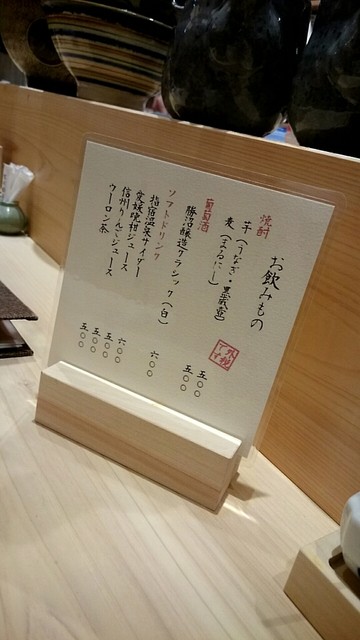 お飲みもの
焼酎
芋（うなぎ・黒瓶壺） 五〇〇
麦（まるにし） 五〇〇
外税です
葡萄酒
勝沼醸造クラシック（白） 六〇〇
ソフトドリンク
指宿温泉サイダー 六〇〇
愛媛晩柑ジュース 五〇〇
信州りんごジュース 五〇〇
ウーロン茶 五〇〇